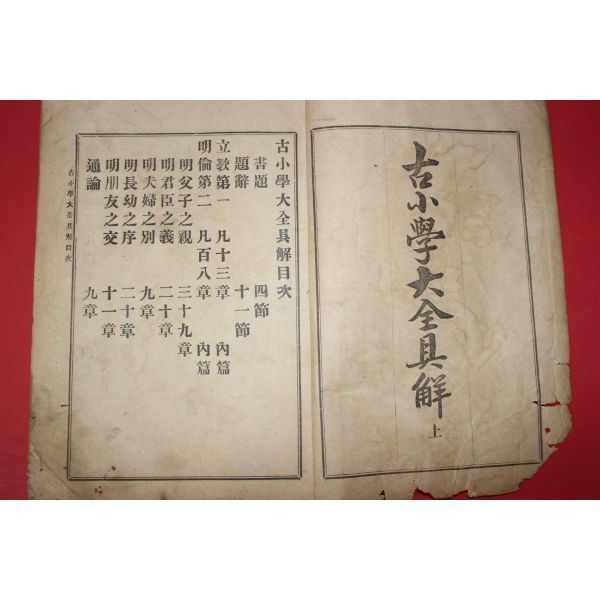 古小學大全具解 上
古小學大全具解目次
書題 四節
題辭 十一節
立敎第一 凡十三章 內篇
明倫第二 凡百八章 內篇
明父子之親 三十九章
明君臣之義 二十章
明夫婦之別 九章
明長幼之序 二十章
明朋友之交 十一章
通論 九章
古小學大全具解目次